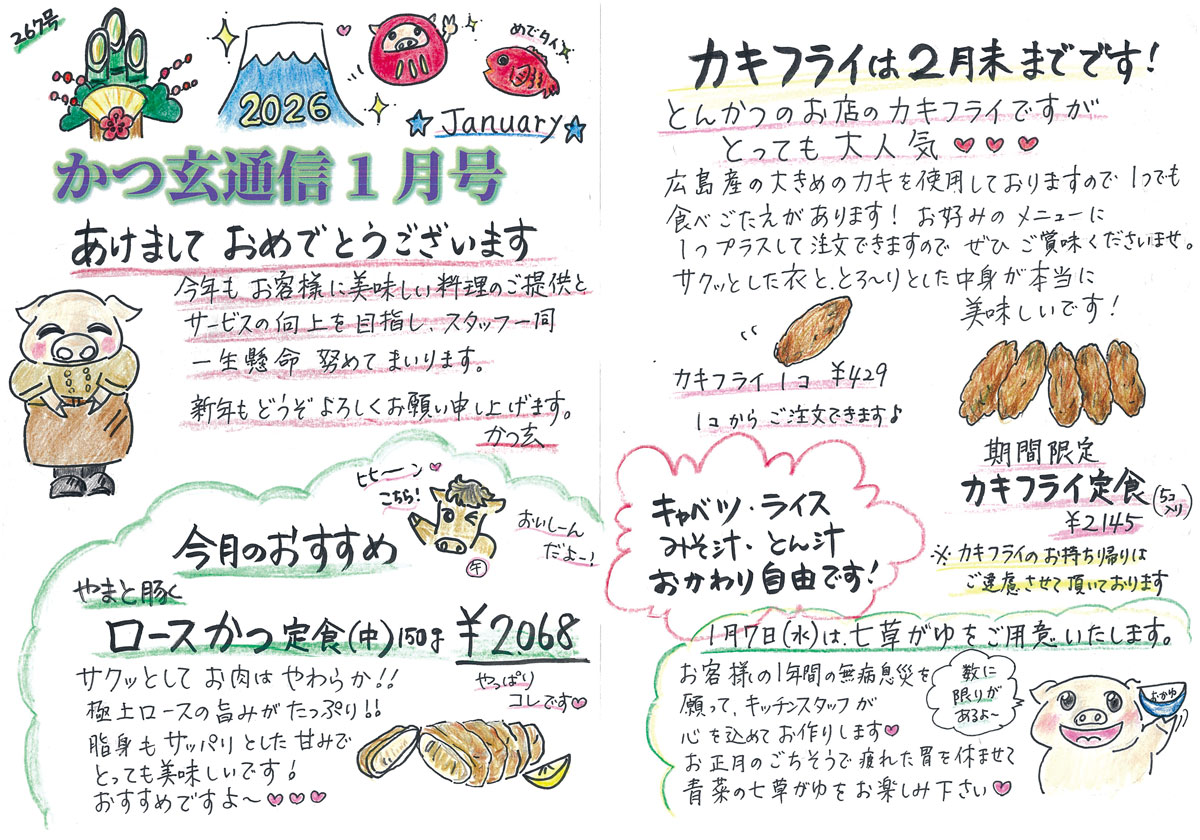 267号
めでタイ
2026
January
かつ玄通信1月号
あけまして おめでとうございます
今年も お客様に美味しい料理のご提供と
サービスの向上を目指し、スタッフ一同
一生懸命 努めてまいります。
新年もどうぞよろしくお願い申し上げます。
かつ玄
ヒヒーン
こちら!
おいしーん
だよー!
午
今月のおすすめ
やまと豚
ロースかつ定食(中)150g ¥2068
サクッとして お肉は やわらか!!
極上ロースの旨みが たっぷり!!
脂身も サッパリとした甘みで
とっても美味しいです!
おすすめですよ〜
やっぱり
コレです
カキフライは2月末までです!
とんかつのお店のカキフライですが
とっても 大人気
広島産の大きめのカキを使用しておりますので 1つでも
食べごたえがあります! お好みの メニューに
1つプラスして注文できますので ぜひ ご賞味くださいませ。
サクッとした衣と、とろ〜りとした中身が本当に
美味しいです!
カキフライ 1コ ¥429
1コから ご注文できます♪
期間限定
カキフライ定食(5コ入り)
¥2145
※カキフライのお持ち帰りは
ご遠慮させて頂いております
キャベツ・ライス
みそ汁・とん汁
おかわり自由です!
1月7日(水)は、七草がゆをご用意いたします。
お客様の1年間の無病息災を
願って、キッチンスタッフが
心を込めてお作りします
お正月のごちそうで疲れた胃を休ませて
青菜の七草がゆをお楽しみ下さい
数に
限りが
あるよ〜
おかゆ